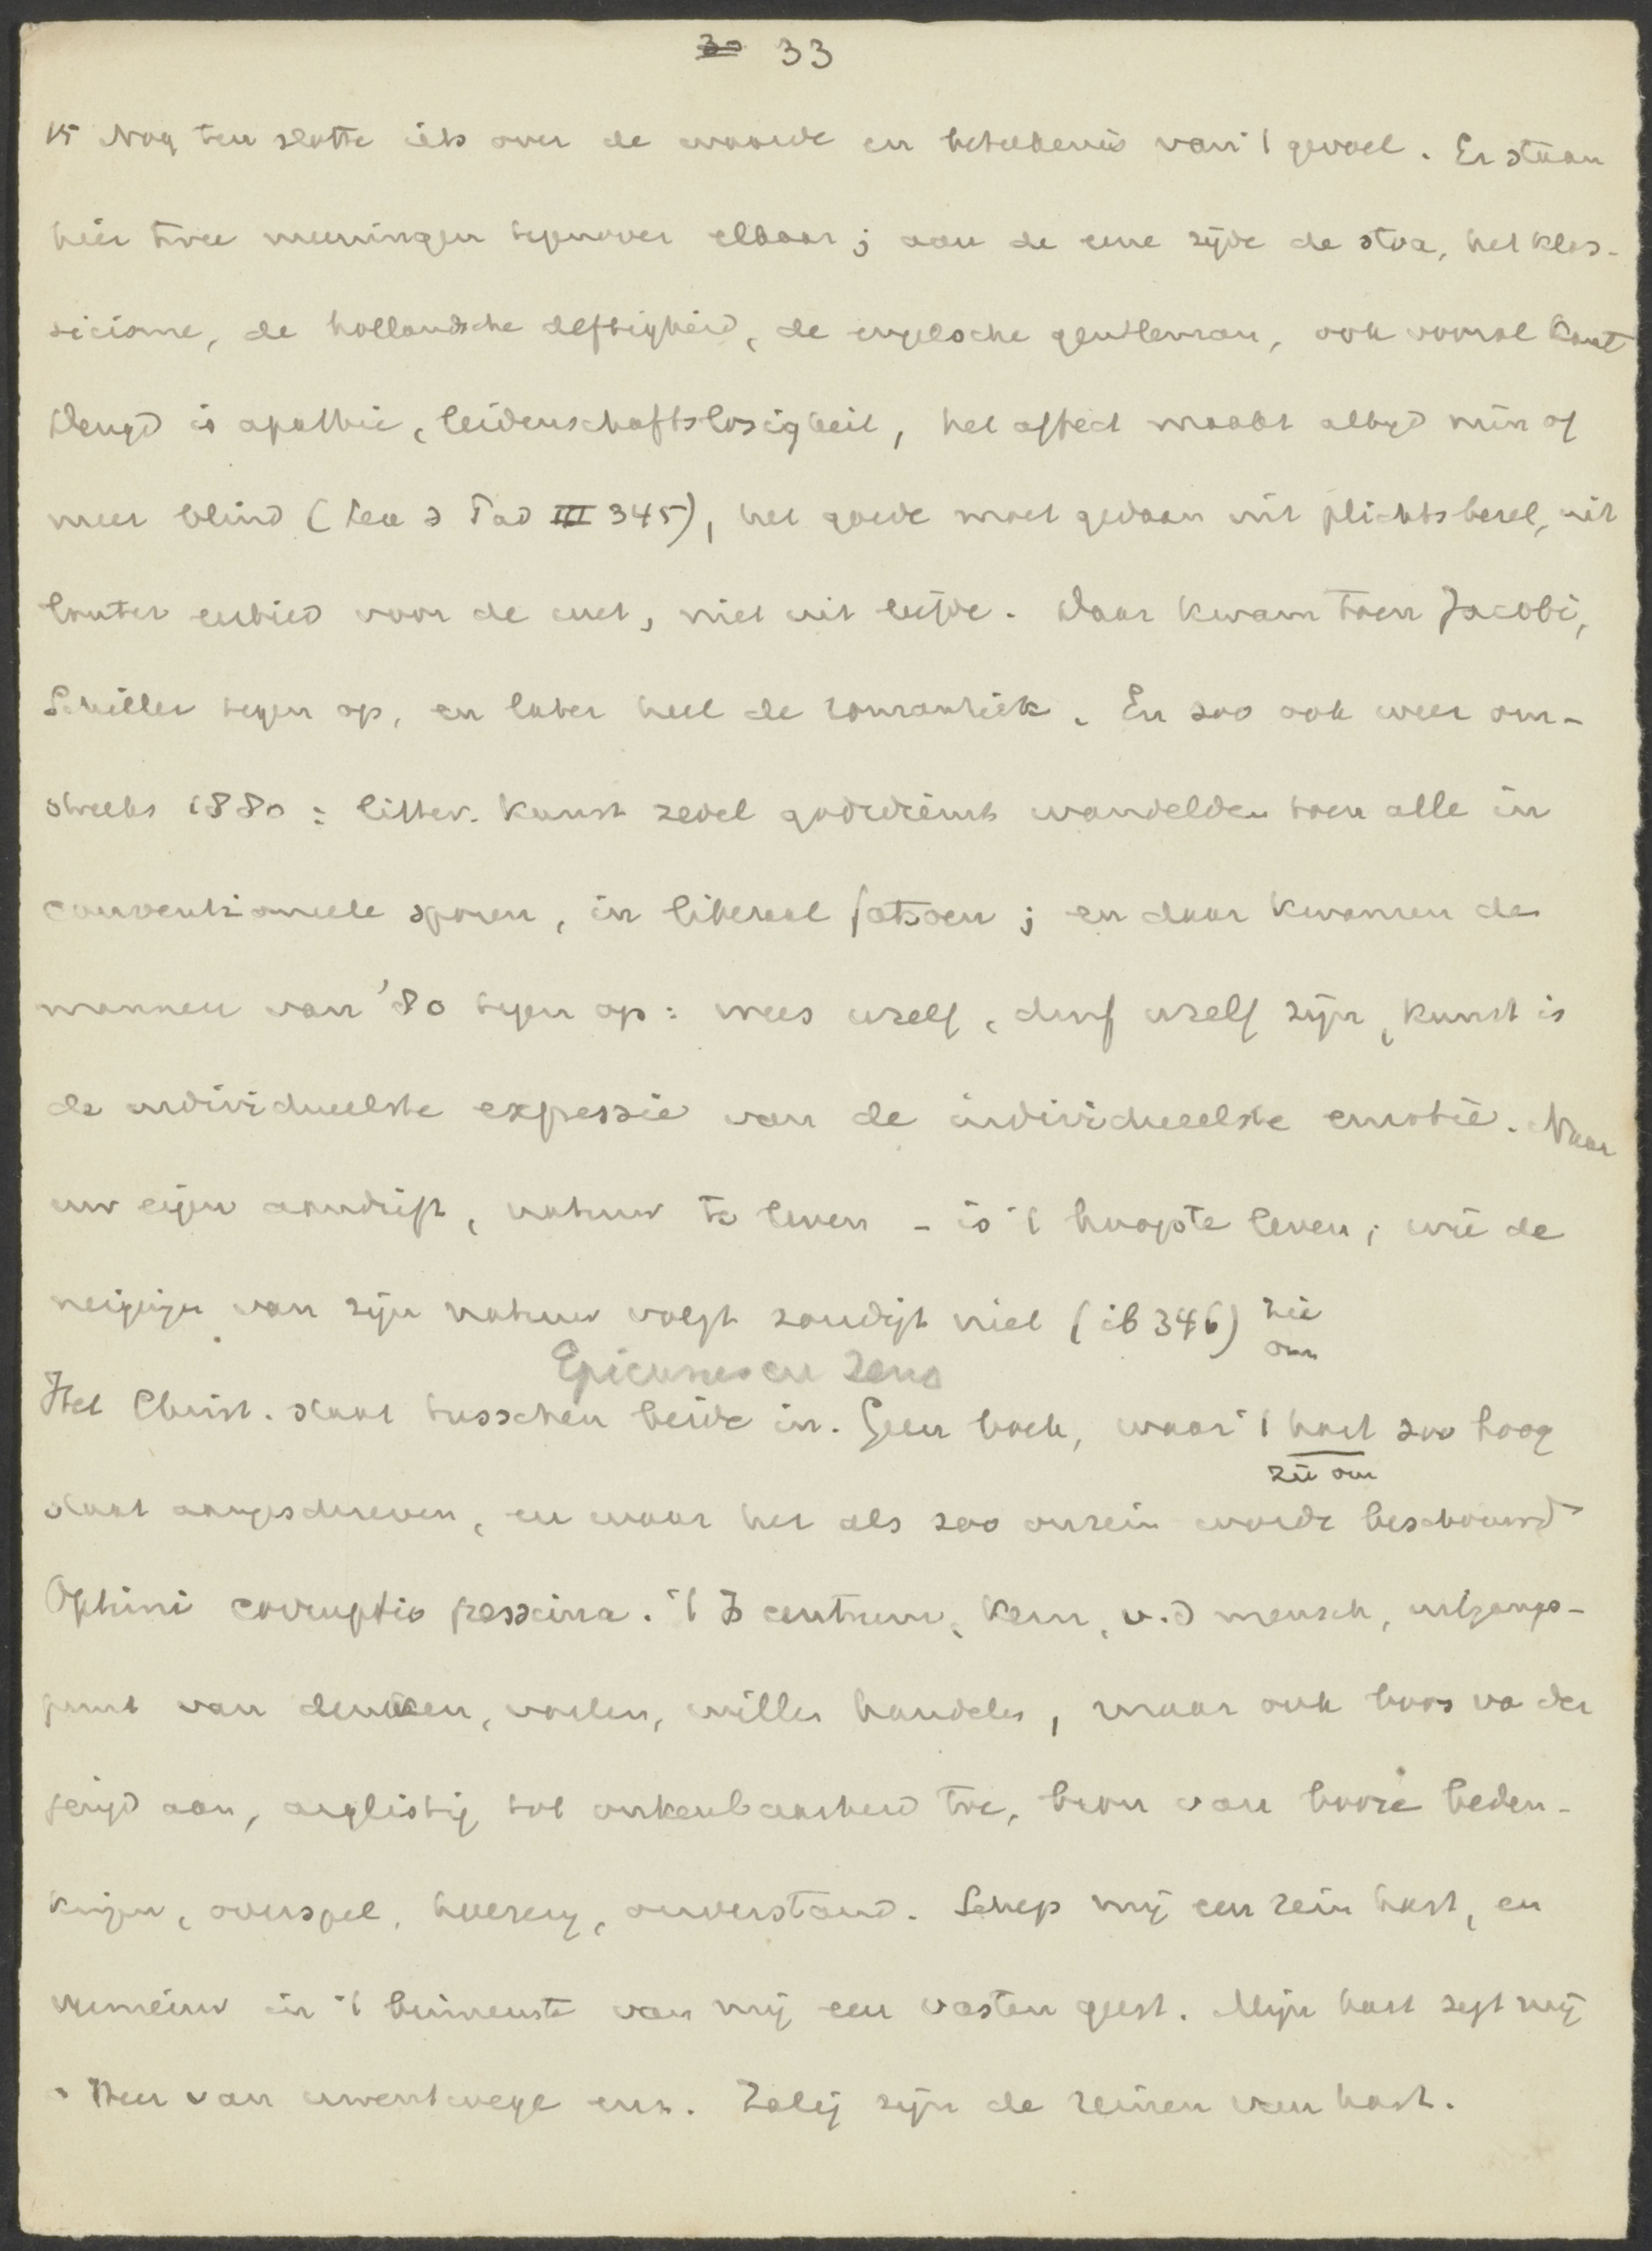 30 33
15 Nog ten slotte iets over de waarde en beteekenis van 't gevoel. Er staan
hier twee meeningen tegenover elkaar; aan de eene zijde de stoa, het klas-
sicisme, de hollandsche deftigheid, de engelsche gentleman, ook vooral Kant
Deugd is apathie, leidenschaftslosigkeit, het affect maakt altijd min of
meer blind ( III 345), het goede moet gedaan uit plichtsbesef, uit
louter eerbied voor de wet, niet uit liefde. Daar kwam toen Jacobi,
Schiller tegen op, en later heel de romantiek. En zoo ook weer om-
streeks 1880: litter. kunst zedel godsdienst wandelden toen alle in
conventioneele sporen, in liberaal fatsoen; en daar kwamen de
mannen van '80 tegen op: wees uzelf, durf uzelf zijn, kunst is
de individueelste expressie van de individueelste emotie. Naar
uw eigen aandrift, natuur te leven - is 't hoogste leven; wie de
neigingen van zijn natuur volgt zondigt niet (ib 346) zie
om
Epicurus en Zeno
Het Christ. staat tusschen beide in. Geen boek, waar 't hart zoo hoog
zie om
staat aangeschreven, en waar het als zoo onrein wordt beschouwd
Optimi corruptio pessima. 't Is centrum, kern, v.d mensch, uitgangs-
punt van denken, voelen, willen handelen, maar ook boos va der
jeugd aan, arglistig tot onkenbaarheid toe, bron van booze beden-
kingen, overspel, hoererij, onverstand. Schep mij een rein hart, en
vernieuw in 't binnenste van mij een vasten geest. Mijn hart zegt mij
o Heer van uwentwege enz. Zalig zijn de reinen van hart.